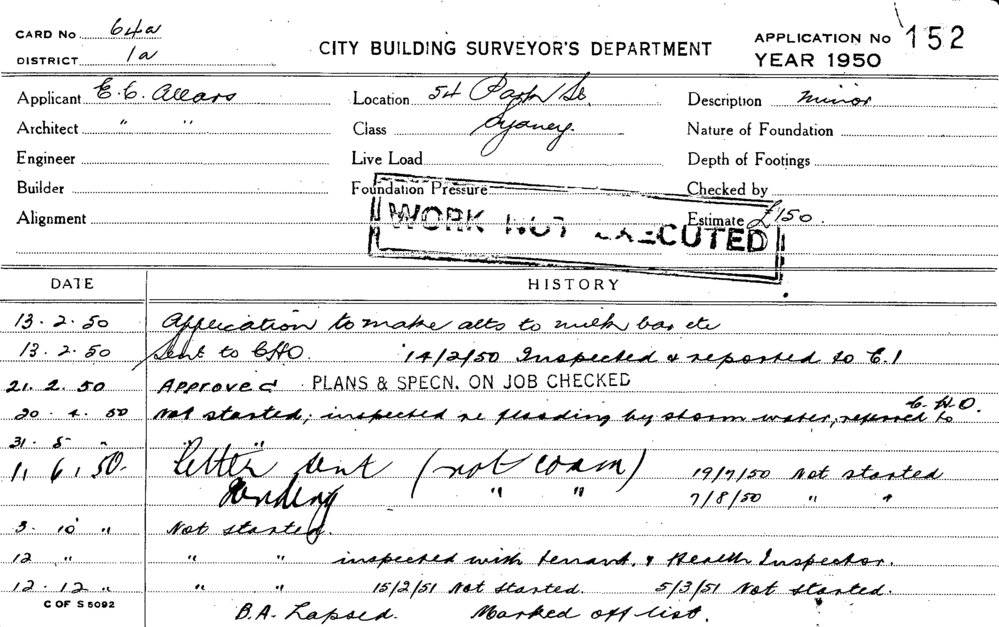 CARD No 64a
DISTRICT 1a
CITY BUILDING SURVEYOR'S DEPARTMENT
APPLICATION No 152
YEAR 1950
Applicant E. C. Allars Location 54 Park St. Description minor
Architect " " Class Sydney. Nature of Foundation
Engineer Live Load Depth of Footings
Builder Foundation Pressure Checked by
Alignment Estimate £150.
WORK NOT EXECUTED
DATE HISTORY
13.2.50 Application to make alts to milk bar etc
13.2.50 Sent to CHO. 14/2/50 Inspected & reported to C.I
21.2.50 Approved PLANS & SPECN. ON JOB CHECKED
20.4.50 Not started; inspected re flooding by storm water, referred to C.H.O.
31.5 " " "
11.6.50. letter sent (not comm) 19/7/50 Not started
Pending " " 7/8/50 " "
3.10 " Not started.
12 " " " inspected with tenant & Health Inspector.
12.12 " " " 15/2/51 Not started. 5/3/51 Not started.
C OF S 5092
B.A. Lapsed. Marked off list.